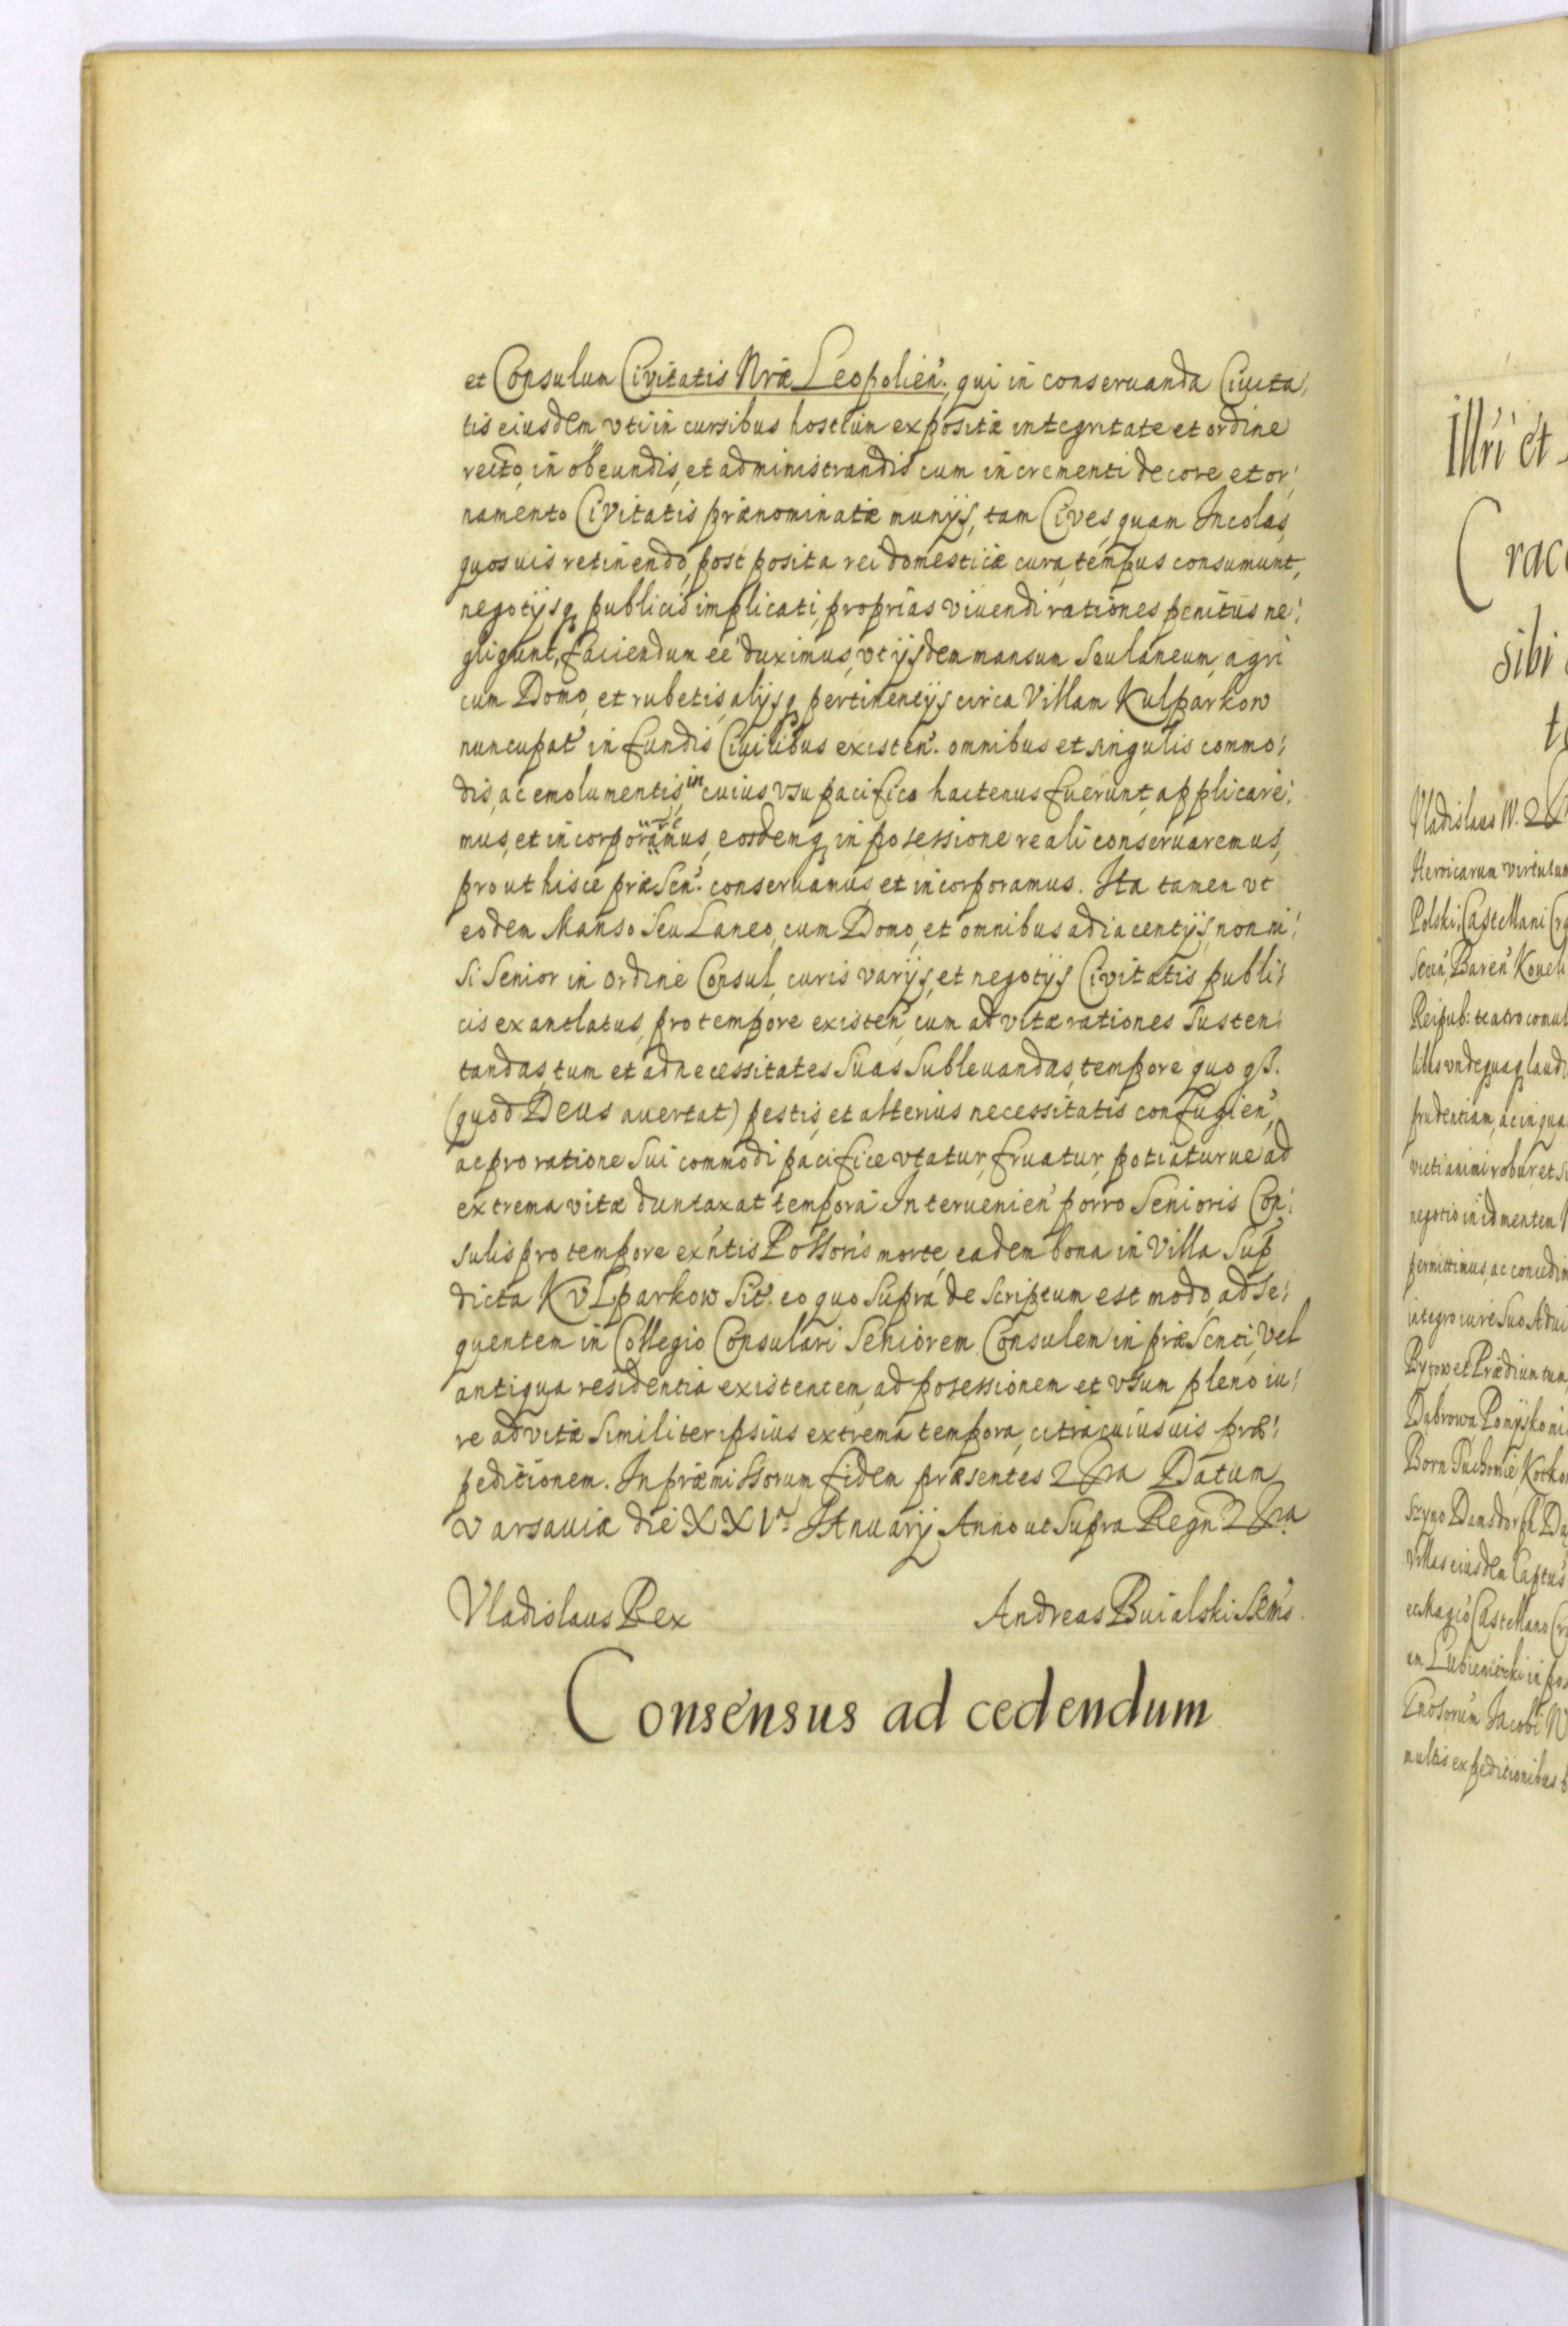 et Consulum Civitatis Nræ Leopolien. qui in conseruanda Ciuita:
tis eiusdem vti in cursibus hostium expositæ integritate et ordine
recto, in obeundis, et administrandis cum incrementi decore et or:
namento Civitatis prænominatæ munijs, tam Cives, quam Incolas,
quosuis retinendo, post posita rei domesticæ cura, tempus consumunt,
negotijsq publicis implicati, proprias viuendi rationes penitus ne:
gligunt, faciendum eē duximus, vt ijsdem mansum Seu laneum, agri
cum Domo, et rubetis, alijsq pertinentijs circa Villam Kulparkow
nuncupat in fundis Ciuilibus existen. omnibus et singulis commo:
dis, ac emolumentis, in cuius vsu pacifico hactenus fuerunt, applicare:
mus, et incorporaremus, eosdemq in posessione reali conseruaremus,
prout hisce præsen. conseruamus et incorporamus. Ita tamen vt
eodem Manso Seu Laneo, cum Domo, et omnibus adiacentijs, non ni:
Si Senior in ordine Consul, curis varijs, et negotijs Civitatis publi:
cis exantlatus, pro tempore existen, cum ad vitæ rationes susten:
tandas, tum et ad necessitates Suas Subleuandas, tempore quoqß.
(quod Deus auertat) pestis, et alterius necessitatis confugien,
ac pro ratione Sui commodi pacifice vtatur, fruatur, potiaturue ad
extrema vitæ duntaxat tempora Interuenien porro Senioris Con:
sulis pro tempore exntis Possoris morte, eadem bona in Villa Sup
dicta KvLparkow Sit. eo quo Supra descriptum est modo, ad Se:
quentem in Collegio Consulari Seniorem Consulem in præsenti, Vel
antiqua residentia existentem, ad posessionem et vsum pleno iu:
re ad vitæ Similiter ipsius extrema tempora, citra cuiusuis præ:
peditionem. In præmissorum fidem præsentes
Datum
Varsauiæ die XXV. IAnuarij Anno ut Supra Regn
Vladislaus Rex
Andreas Buialski
Consensus ad cedendum
Illri et
Crac
sibi
Vladislaus IV.
Heroicarum virtutum
Polski, Castellani
Reipub: teatro
prudentiam, ac in
victi animi robur, et
negotio in id mentem
permittimus, ac
integro iure Suo
Bytow et Prædium tum
Dąbrowa
Villas eiusdem
Castellano
Jacobi
multis expeditionibus